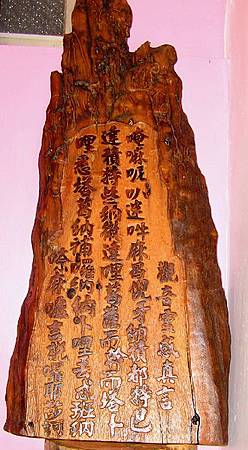 觀音靈感真言
唵嘛呢叭吽麻曷倪牙納積都特巴
達積特些納微達哩葛薩而斡而塔卜
哩悉塔葛納補囉納納卜哩丟忒班納
麻嚧吉說囉耶訶